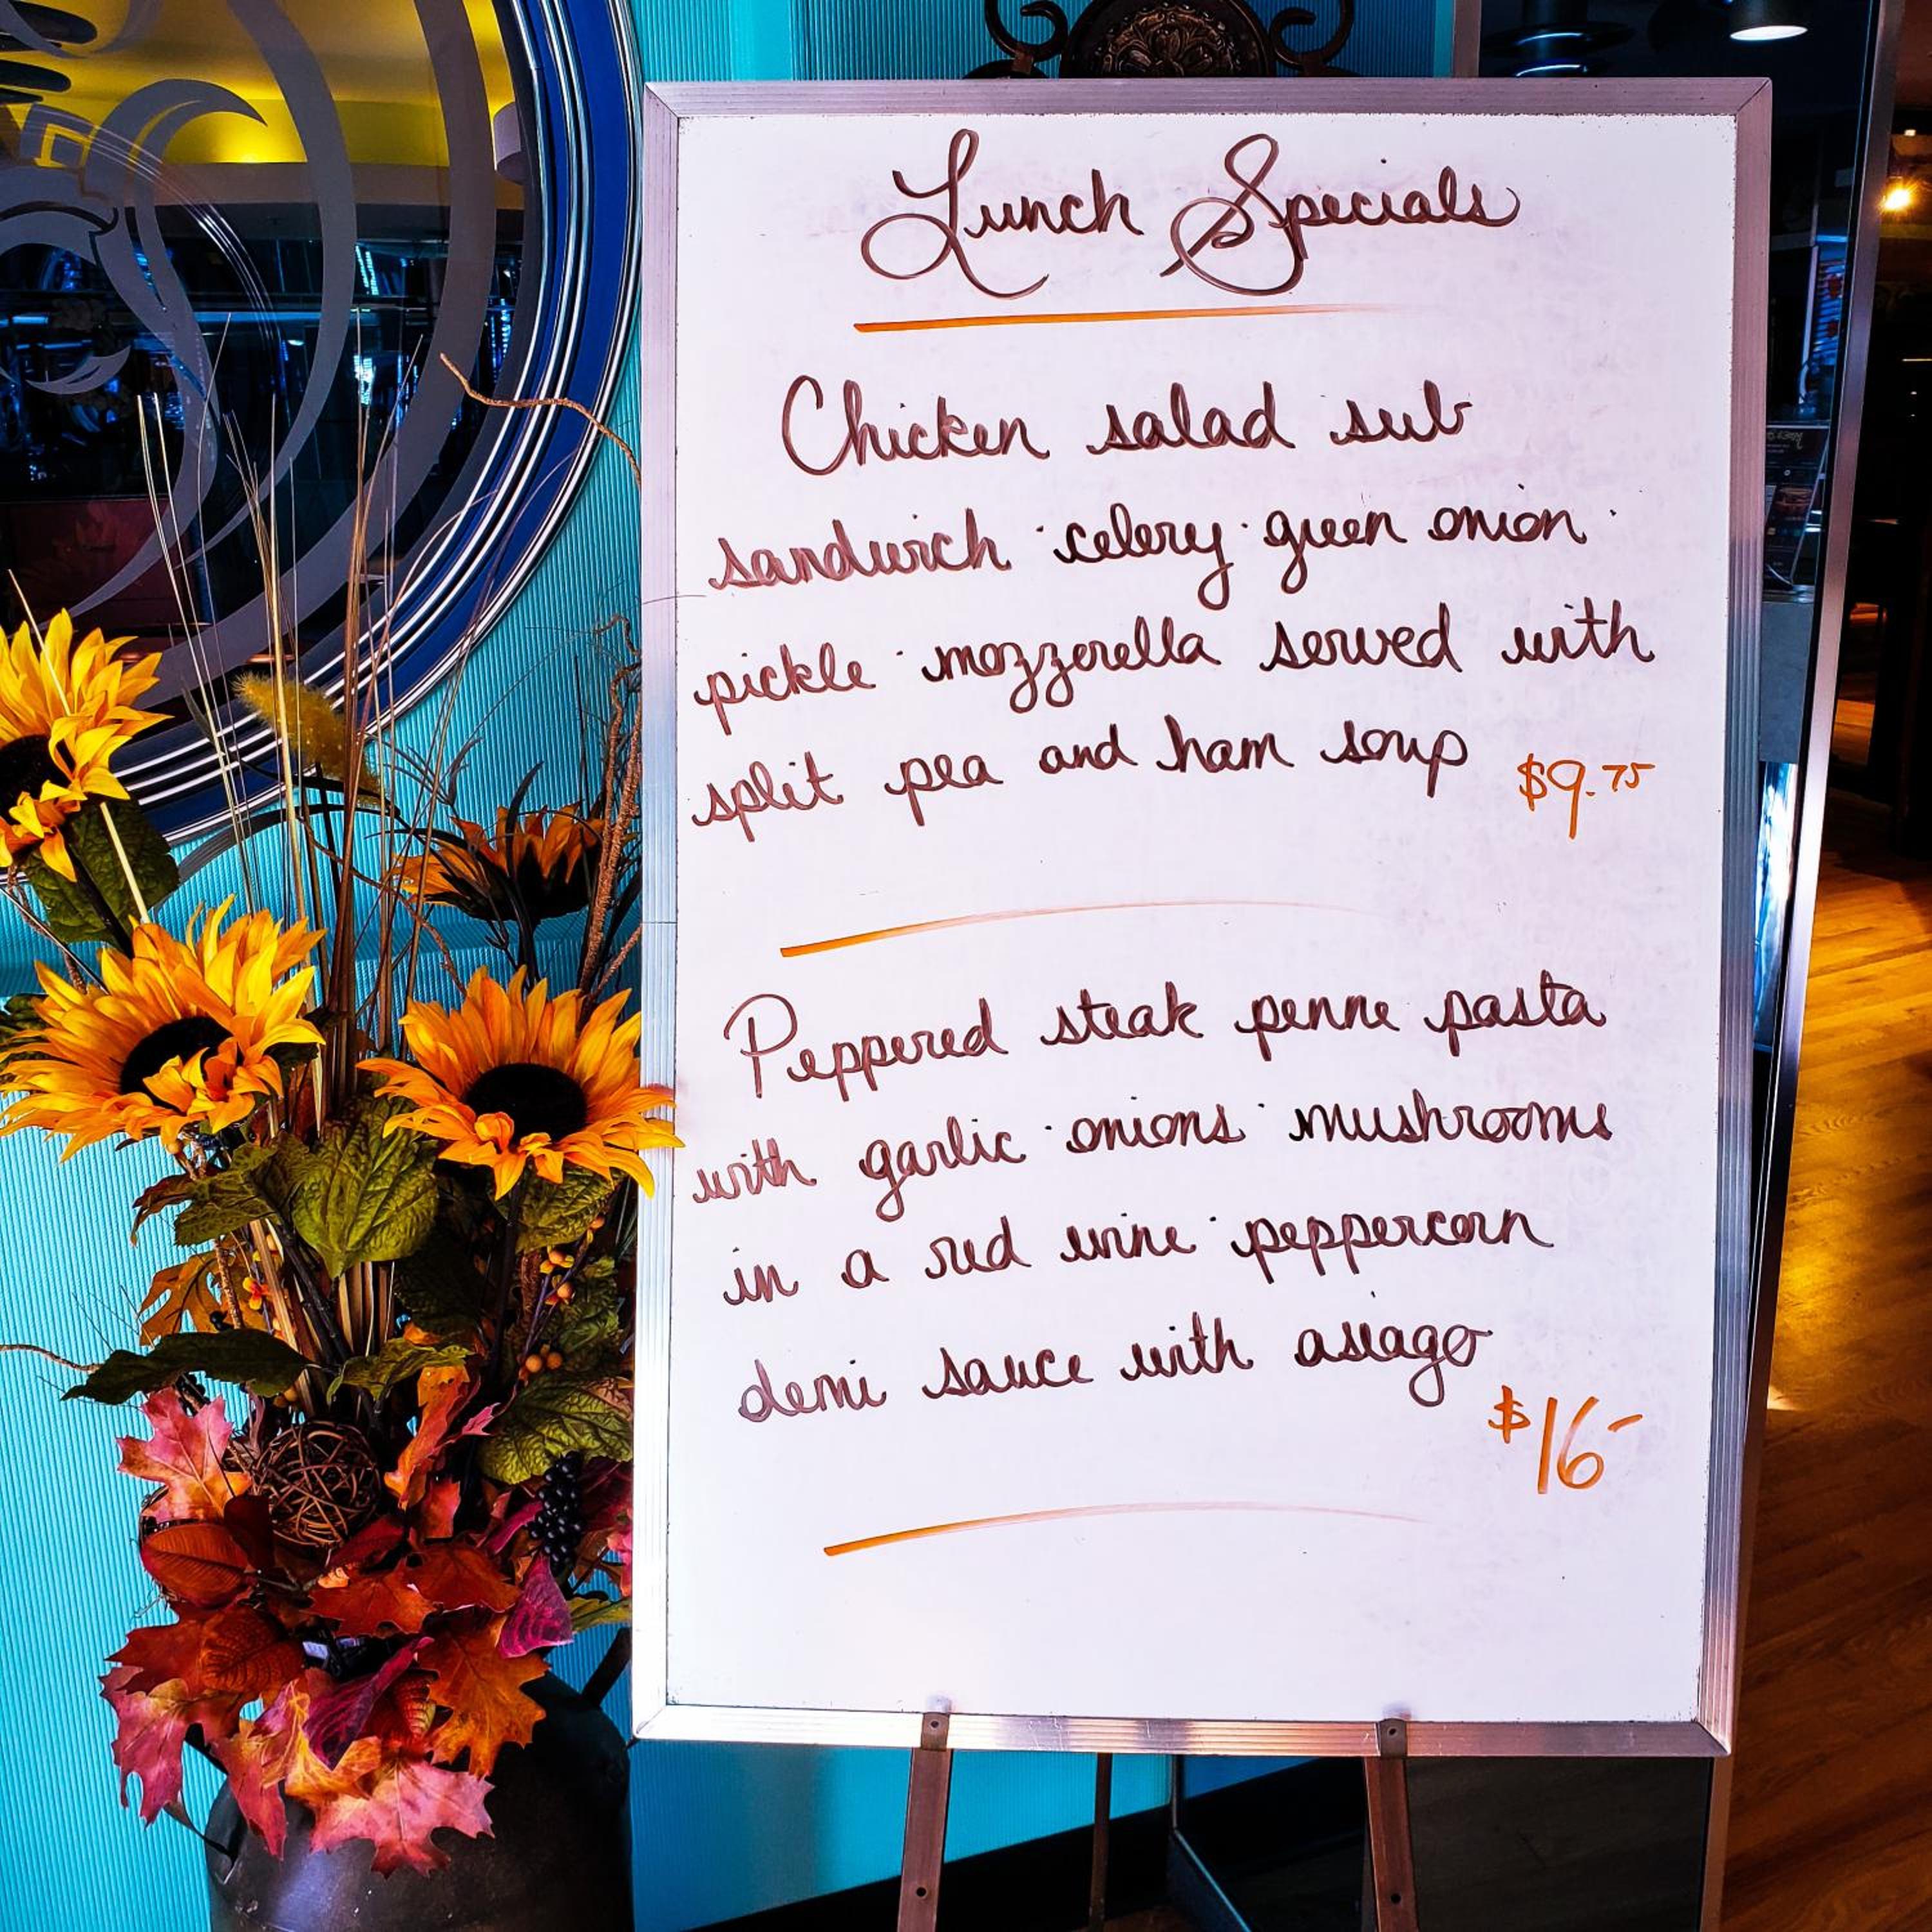 Lunch Specials
Chicken salad sub
sandwich · celery · green onion ·
pickle · mozzerella served with
split pea and ham soup $9.75
Peppered steak penne pasta
with garlic · onions · mushrooms
in a red wine · peppercorn
demi sauce with asiago
$16-